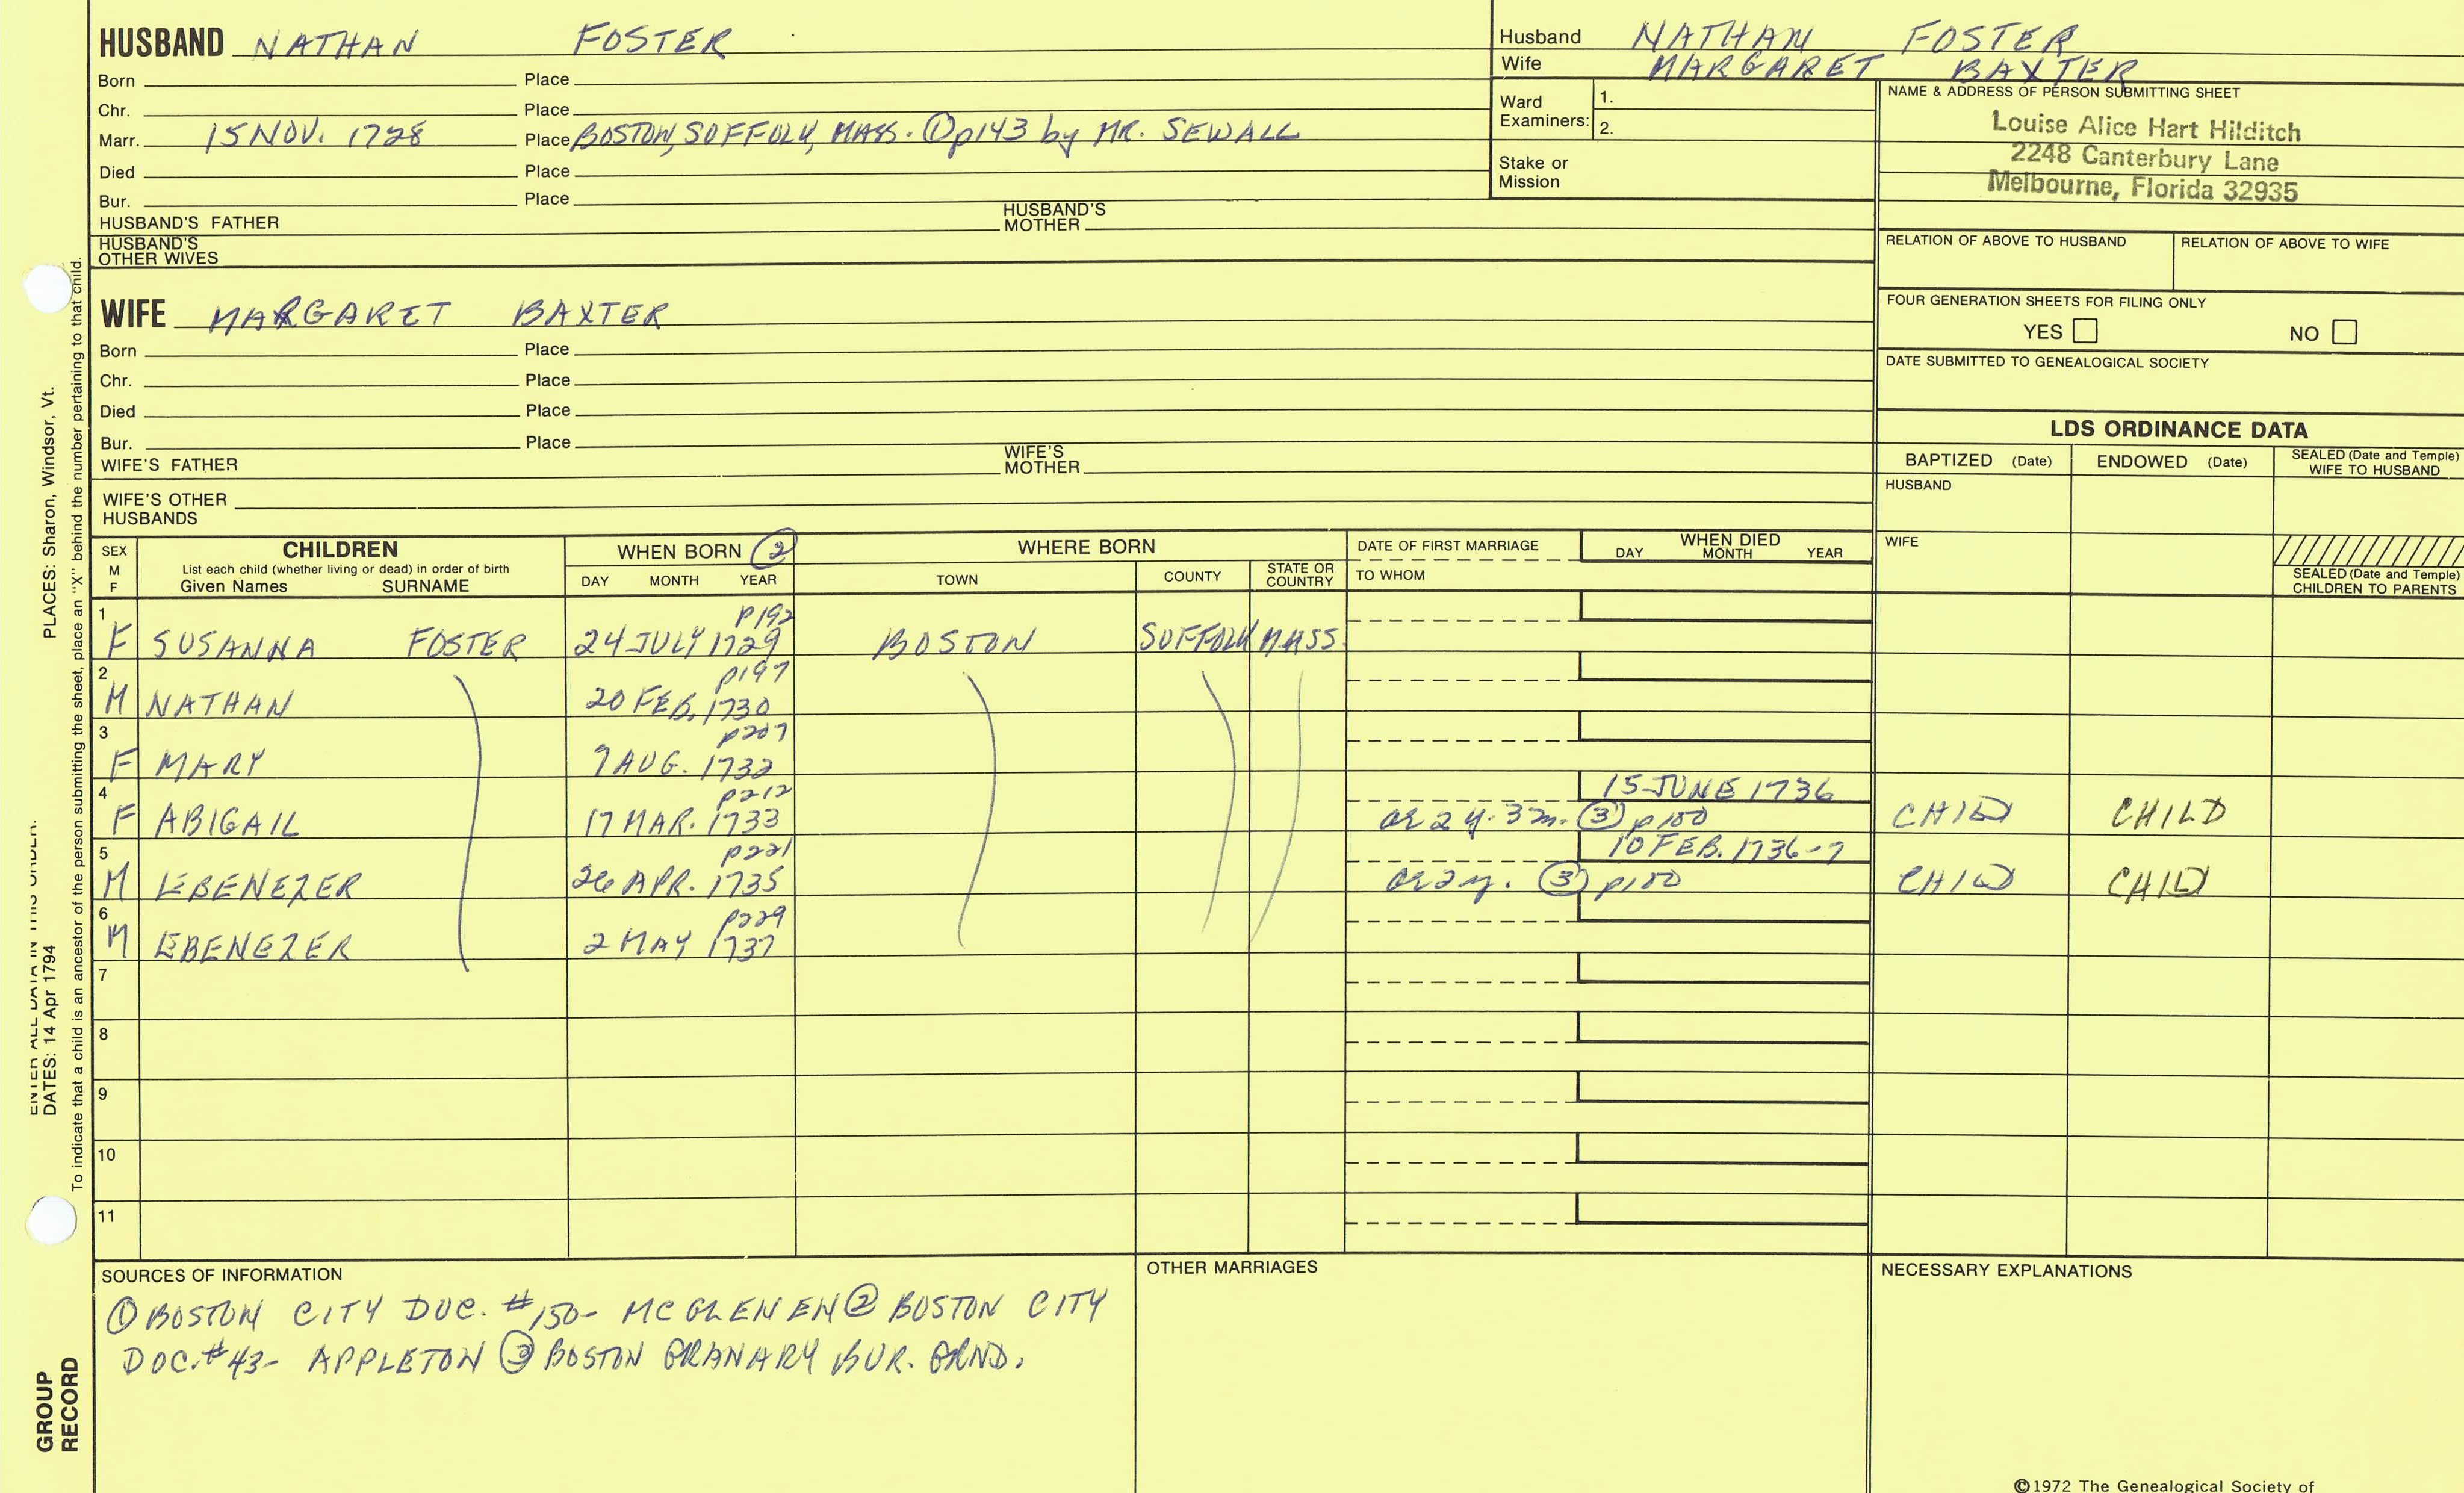 HUSBAND NATHAN FOSTER
Born Place
Chr. Place
Marr. 15 NOV. 1728 Place BOSTON, SUFFOLK, MASS. ① p143 by MR. SEWALL
Died Place
Bur. Place
HUSBAND'S FATHER HUSBAND'S MOTHER
HUSBAND'S OTHER WIVES
Husband NATHAN FOSTER
Wife MARGARET BAXTER
Ward Examiners: 1.
2.
Stake or Mission
NAME & ADDRESS OF PERSON SUBMITTING SHEET
Louise Alice Hart Hilditch
2248 Canterbury Lane
Melbourne, Florida 32935
RELATION OF ABOVE TO HUSBAND RELATION OF ABOVE TO WIFE
FOUR GENERATION SHEETS FOR FILING ONLY
YES NO
DATE SUBMITTED TO GENEALOGICAL SOCIETY
WIFE MARGARET BAXTER
Born Place
Chr. Place
Died Place
Bur. Place
WIFE'S FATHER WIFE'S MOTHER
WIFE'S OTHER HUSBANDS
LDS ORDINANCE DATA
BAPTIZED (Date) ENDOWED (Date) SEALED (Date and Temple) WIFE TO HUSBAND
HUSBAND
WIFE
SEALED (Date and Temple) CHILDREN TO PARENTS
SEX M F
CHILDREN
List each child (whether living or dead) in order of birth
Given Names SURNAME
WHEN BORN ②
DAY MONTH YEAR
WHERE BORN
TOWN COUNTY STATE OR COUNTRY
DATE OF FIRST MARRIAGE
TO WHOM
WHEN DIED
DAY MONTH YEAR
1 p192
F SUSANNA FOSTER 24 JULY 1729 BOSTON SUFFOLK MASS.
2 p197
M NATHAN 20 FEB. 1730
3 p207
F MARY 9 AUG. 1732
4 p212 15 JUNE 1736
F ABIGAIL 17 MAR. 1733 ae 2 y. 3 m. ③ p100 CHILD CHILD
5 p221 10 FEB. 1736-7
M EBENEZER 26 APR. 1735 ae 2 y. ③ p100 CHILD CHILD
6 p229
M EBENEZER 2 MAY 1737
7
8
9
10
11
SOURCES OF INFORMATION
① BOSTON CITY DOC. #150- MCGLENEN ② BOSTON CITY
DOC. #43- APPLETON ③ BOSTON GRANARY BUR. GRND.
OTHER MARRIAGES
NECESSARY EXPLANATIONS
©1972 The Genealogical Society of
ENTER ALL DATA IN THIS ORDER:
DATES: 14 Apr 1794 PLACES: Sharon, Windsor, Vt.
To indicate that a child is an ancestor of the person submitting the sheet, place an "X" behind the number pertaining to that child.
GROUP
RECORD